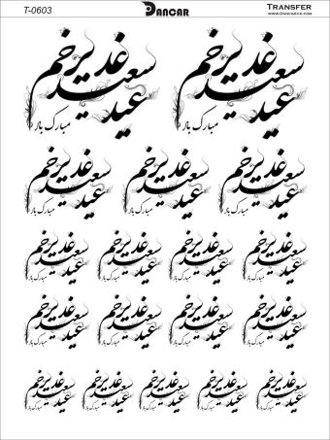 T-0603
DANCAR
TRANSFER
www.Dancar.com
عید سعید غدیر خم
مبارک باد
عید سعید غدیر خم
مبارک باد
عید سعید غدیر خم
مبارک باد
عید سعید غدیر خم
مبارک باد
عید سعید غدیر خم
مبارک باد
عید سعید غدیر خم
مبارک باد
عید سعید غدیر خم
مبارک باد
عید سعید غدیر خم
مبارک باد
عید سعید غدیر خم
مبارک باد
عید سعید غدیر خم
مبارک باد
عید سعید غدیر خم
مبارک باد
عید سعید غدیر خم
مبارک باد
عید سعید غدیر خم
مبارک باد
عید سعید غدیر خم
مبارک باد
عید سعید غدیر خم
مبارک باد
عید سعید غدیر خم
مبارک باد
عید سعید غدیر خم
مبارک باد
عید سعید غدیر خم
مبارک باد